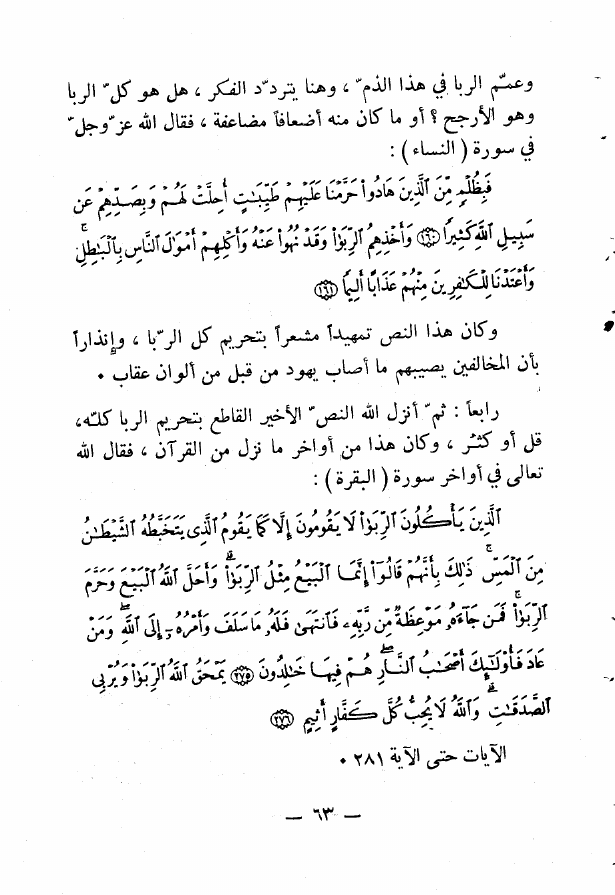 وعمّم الربا في هذا الذمّ ، وهنا يتردّد الفكر ، هل هو كلّ الربا
وهو الأرجح ؟ أو ما كان منه أضعافاً مضاعفة ، فقال الله عزّ وجلّ
في سورة ( النساء ) :
فَبِظُلْمٍ مِّنَ ٱلَّذِينَ هَادُوا۟ حَرَّمْنَا عَلَيْهِمْ طَيِّبَـٰتٍ أُحِلَّتْ لَهُمْ وَبِصَدِّهِمْ عَن
سَبِيلِ ٱللَّهِ كَثِيرًا ﴿١٦٠﴾ وَأَخْذِهِمُ ٱلرِّبَوٰا۟ وَقَدْ نُهُوا۟ عَنْهُ وَأَكْلِهِمْ أَمْوَٰلَ ٱلنَّاسِ بِٱلْبَـٰطِلِ ۚ
وَأَعْتَدْنَا لِلْكَـٰفِرِينَ مِنْهُمْ عَذَابًا أَلِيمًا ﴿١٦١﴾
وكان هذا النص تمهيداً مشعراً بتحريم كل الرّبا ، وإنذاراً
بأن المخالفين يصيبهم ما أصاب يهود من قبل من ألوان عقاب .
رابعاً : ثمّ أنزل الله النصّ الأخير القاطع بتحريم الربا كلّه،
قل أو كثر ، وكان هذا من أواخر ما نزل من القرآن ، فقال الله
تعالى في أواخر سورة ( البقرة ) :
ٱلَّذِينَ يَأْكُلُونَ ٱلرِّبَوٰا۟ لَا يَقُومُونَ إِلَّا كَمَا يَقُومُ ٱلَّذِى يَتَخَبَّطُهُ ٱلشَّيْطَـٰنُ
مِنَ ٱلْمَسِّ ۚ ذَٰلِكَ بِأَنَّهُمْ قَالُوٓا۟ إِنَّمَا ٱلْبَيْعُ مِثْلُ ٱلرِّبَوٰا۟ ۗ وَأَحَلَّ ٱللَّهُ ٱلْبَيْعَ وَحَرَّمَ
ٱلرِّبَوٰا۟ ۚ فَمَن جَآءَهُۥ مَوْعِظَةٌ مِّن رَّبِّهِۦ فَٱنتَهَىٰ فَلَهُۥ مَا سَلَفَ وَأَمْرُهُۥٓ إِلَى ٱللَّهِ ۖ وَمَنْ
عَادَ فَأُو۟لَـٰٓئِكَ أَصْحَـٰبُ ٱلنَّارِ ۖ هُمْ فِيهَا خَـٰلِدُونَ ﴿٢٧٥﴾ يَمْحَقُ ٱللَّهُ ٱلرِّبَوٰا۟ وَيُرْبِى
ٱلصَّدَقَـٰتِ ۗ وَٱللَّهُ لَا يُحِبُّ كُلَّ كَفَّارٍ أَثِيمٍ ﴿٢٧٦﴾
الآيات حتى الآية ٢٨١ .
— ٦٣ —